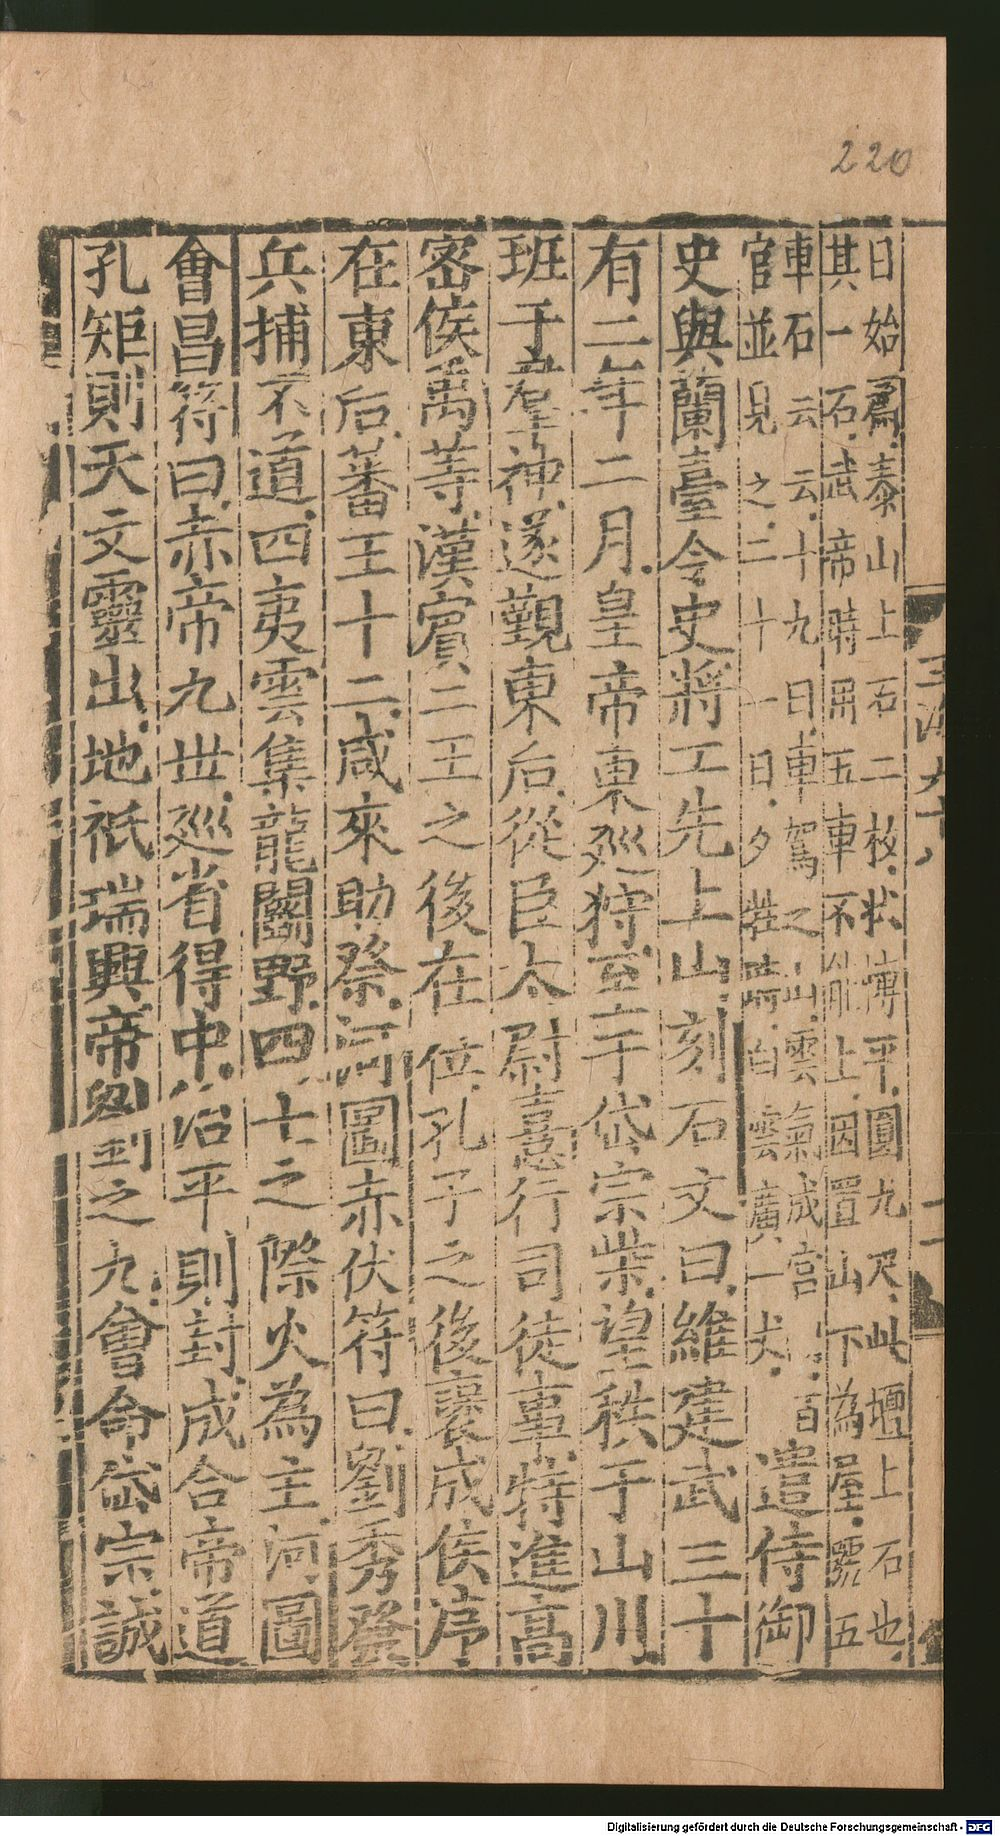 220
日始爲泰山上石二枚狀慱平圓九尺此壇上石也
其一石武帝時用五車不能上因置山下為屋號五
車石云云十九日車駕之山雲氣成宮百
官並見之二十一日夕牲時白雲廣一丈
遣侍御
史與蘭臺令史將工先上山刻石文曰維建武三十
有二年二月皇帝東廵狩至于岱宗柴望秩于山川
班于羣神遂覲東后從臣太尉憙行司徒事特進高
密侯禹等漢賓二王之後在位孔子之後襃成侯序
在東后蕃王十二咸來助祭河圖赤伏符曰劉秀發
兵捕不道四夷雲集龍鬭野四七之際火為主河圖
會昌符曰赤帝九世廵省得中治平則封成合帝道
孔矩則天文靈出地祇瑞興帝劉之九會命岱宗誠
玉海九十八
Digitalisierung gefördert durch die Deutsche Forschungsgemeinschaft - DFG